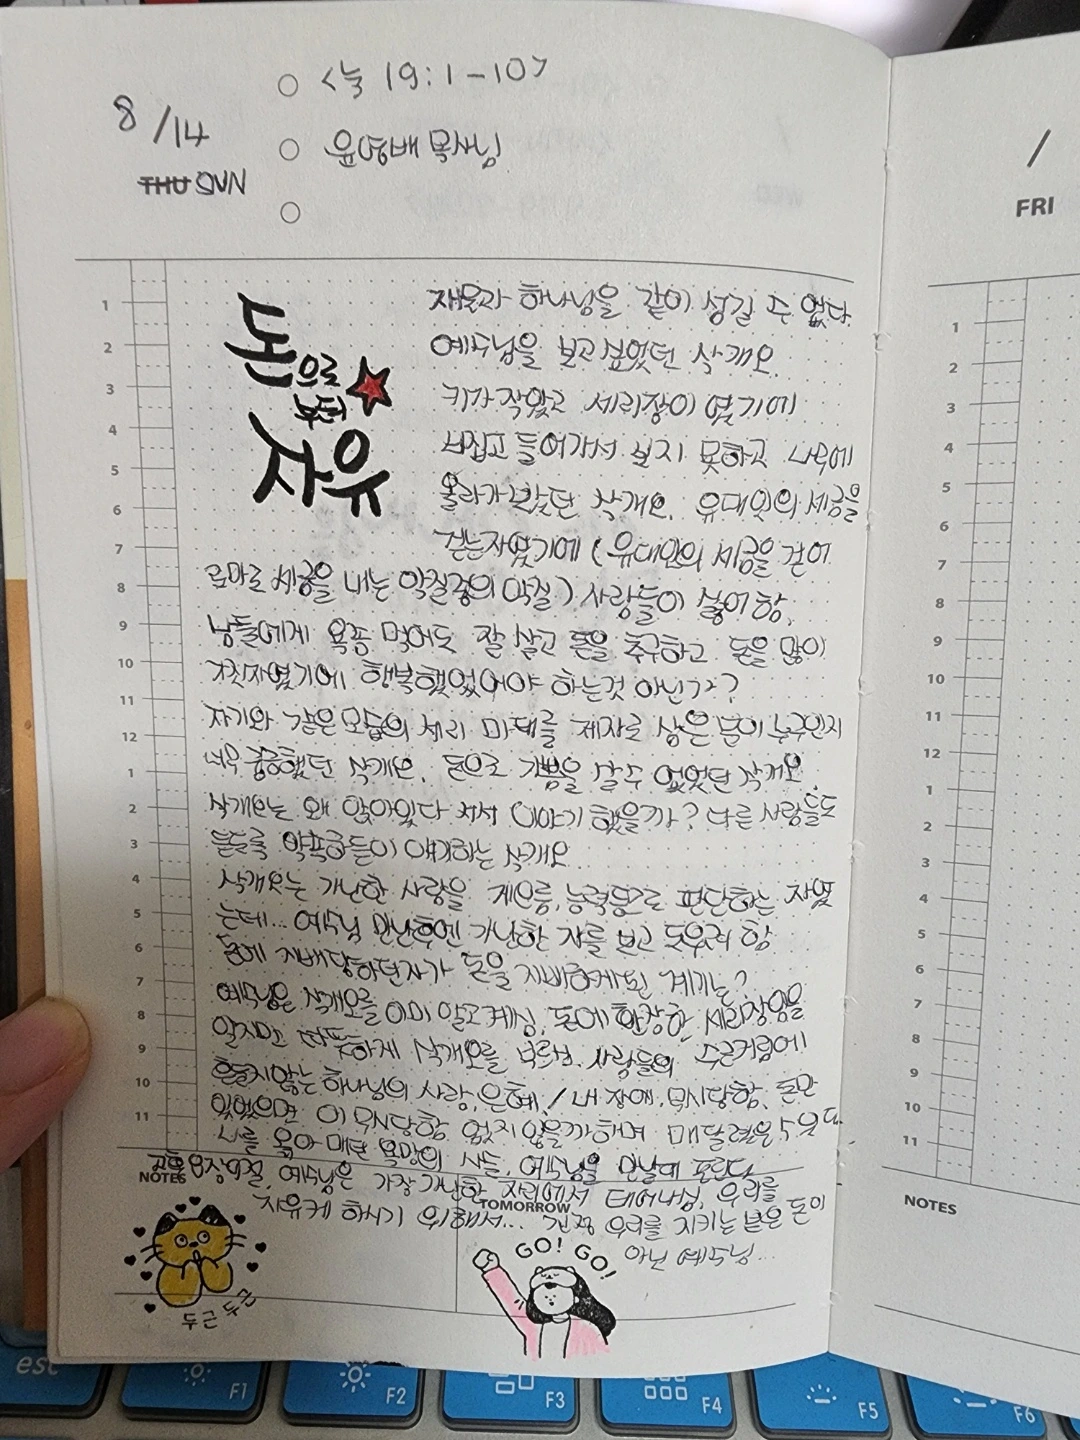 8/14
THU SUN
<눅 19:1-10>
윤영배 목사님
돈으로
부터
자유
재물과 하나님을 같이 섬길 수 없다.
예수님을 보고싶었던 삭개오.
키가작았고 세리장이 였기에
비집고 들어가서 보지 못하고 나무에
올라가봤던 삭개오. 유대인의 세금을
걷는자였기에 (유대인의 세금을 걷어
로마로 세금을 내는 악질중의 악질) 사람들이 싫어함.
남들에게 욕좀 먹어도 잘 살고 돈을 추구하고 돈을 많이
가진자였기에 행복했었어야 하는것 아닌가?
자기와 같은 모습의 세리 마태를 제자로 삼은 분이 누구인지
너무 궁금했던 삭개오. 돈으로 기쁨을 살수 없었던 삭개오.
삭개오는 왜 앉아있다 서서 이야기 했을까? 다른 사람들도
듣도록 얘기하는 삭개오
삭개오는 가난한 사람을 게으름, 능력등으로 판단하는 자였
는데... 예수님 만난후엔 가난한 자를 보고 도우려 함
돈에 지배당하던자가 돈을 지배하게된 계기는?
예수님은 삭개오를 이미 알고계심. 돈에 환장한 세리장임을
알지만 따뜻하게 삭개오를 부르심. 사람들의 수근거림에
흔들지않는 하나님의 사랑, 은혜 / 내 장애, 무시당함, 돈만
있었으면 이 무시당함 없지 않을까하며 매달렸은
나를 옭아 매던 욕망의 사슬, 예수님을 만날때 풀린다
고후 8장9절, 예수님은 가장 가난한 자리에서 태어나심, 우리를
자유케 하시기 위해서... 진정 우리를 지키는 분은 돈이
아닌 예수님...
NOTES
TOMORROW
두근두근
GO! GO!
1
2
3
4
5
6
7
8
9
10
11
12
1
2
3
4
5
6
7
8
9
10
11
/
FRI
1
2
3
4
5
6
7
8
9
10
11
12
1
2
3
4
5
6
7
8
9
10
11
NOTES
esc
F1
F2
F3
F4
F5
F6